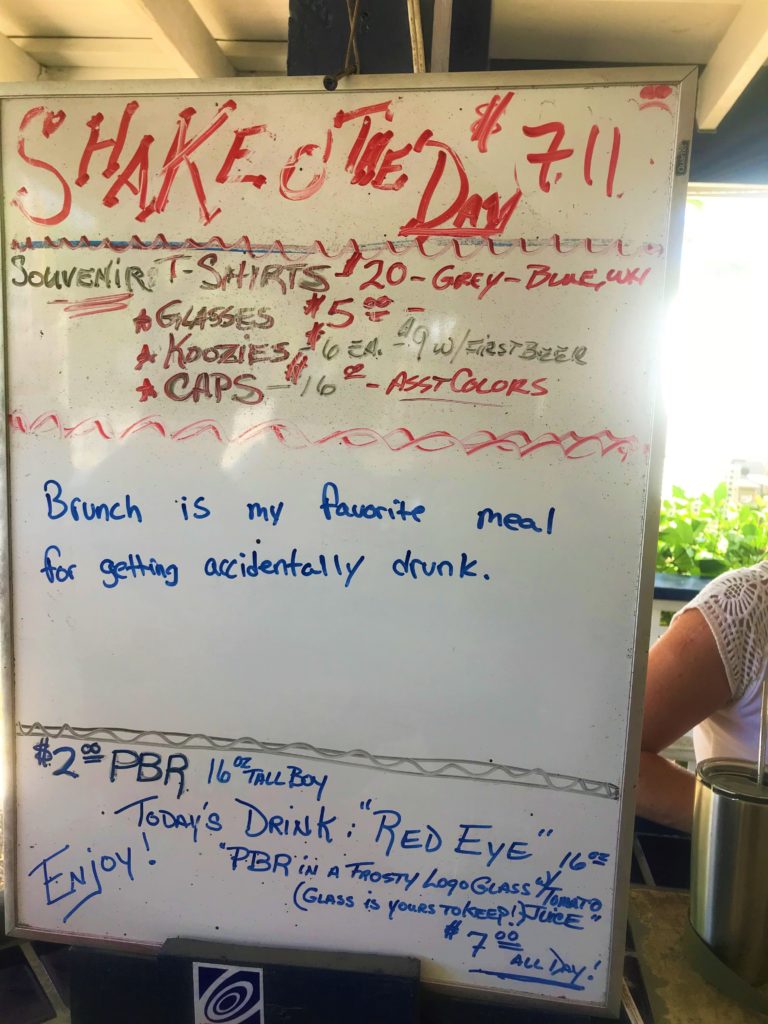 SHAKE O' THE DAY $7.11
SOUVENIR T-SHIRTS $20 - GREY - BLUE, WH
★ GLASSES $5.00 -
★ KOOZIES - $6 EA. - $9 W/ FIRST BEER
★ CAPS - $16 - ASST COLORS
Brunch is my favorite meal
for getting accidentally drunk.
$2.00 PBR 16 OZ TALL BOY
TODAY'S DRINK: "RED EYE" 16 OZ
"PBR IN A FROSTY LOGO GLASS W/ TOMATO
(GLASS IS YOURS TO KEEP!) JUICE"
ENJOY!
$7.00 ALL DAY!